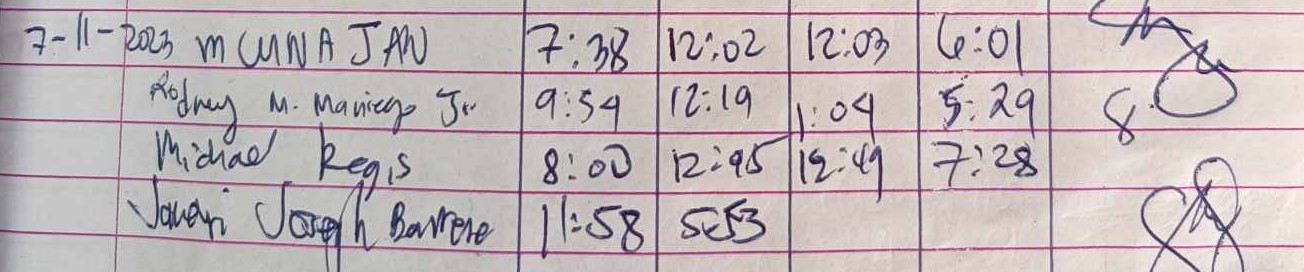 7-11-2023 MCUNA JAN 7:38 12:02 12:03 6:01
Rodney M. Maniego Jr. 9:54 12:19 1:04 5:29
Michael Regis 8:00 12:45 12:49 7:28
Joseph Barrere 11:58 5:53